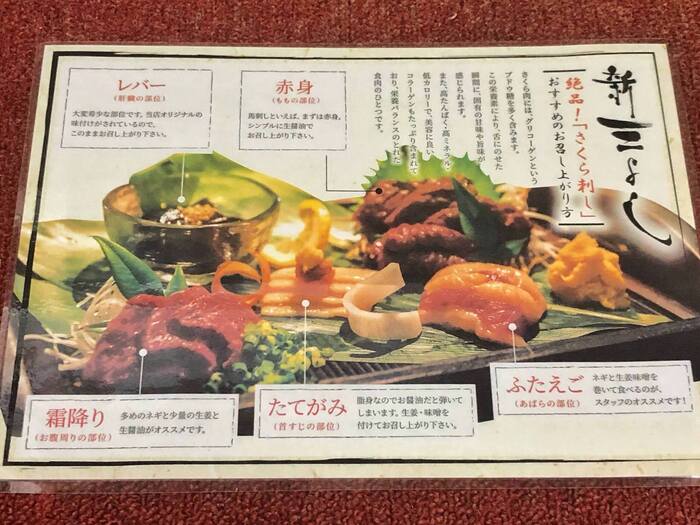 新三よし
絶品！「さくら刺し」
おすすめのお召し上がり方
さくら肉には、グリコーゲンという
ブドウ糖を多く含みます。
この栄養素により、舌にのせた
瞬間に、固有の甘味や旨味が
感じられます。
また、高たんぱく・高ミネラル・
低カロリーで、美容に良い
コラーゲンもたっぷり含まれて
おり、栄養バランスのとれた
食肉のひとつです。
レバー
（肝臓の部位）
大変希少な部位です。当店オリジナルの
味付けがされているので、
このままお召し上がり下さい。
赤身
（ももの部位）
馬刺しといえば、まずは赤身。
シンプルに生醤油で
お召し上がり下さい。
霜降り
（お腹周りの部位）
多めのネギと少量の生姜と
生醤油がオススメです。
たてがみ
（首すじの部位）
脂身なのでお醤油だと弾いて
しまいます。生姜・味噌を
付けてお召し上がり下さい。
ふたえご
（あばらの部位）
ネギと生姜味噌を
巻いて食べるのが、
スタッフのオススメです！